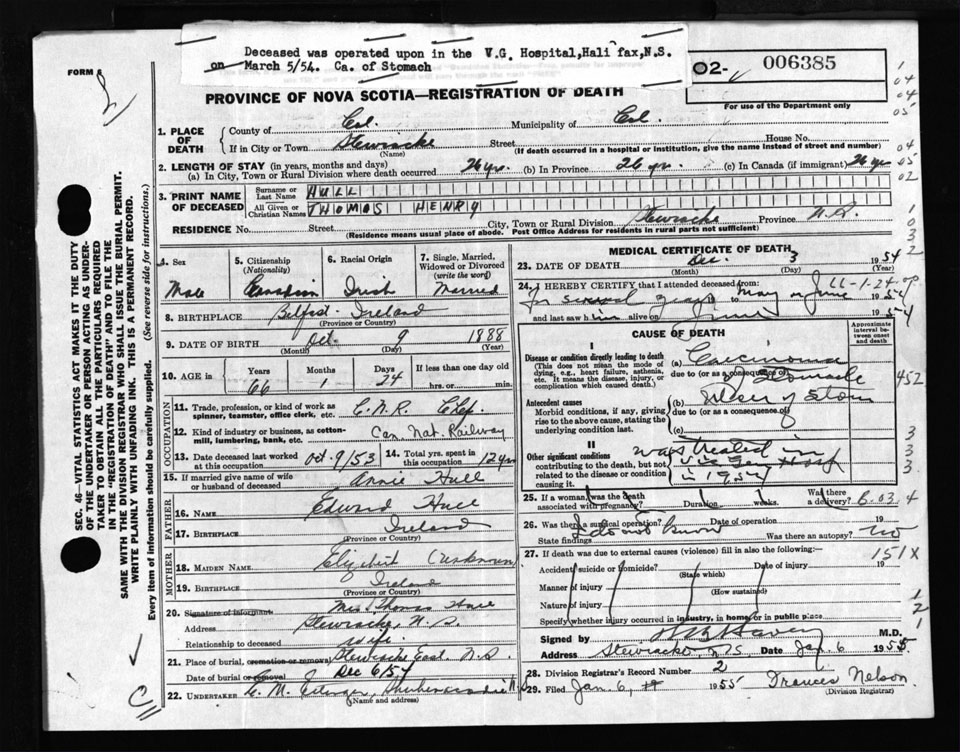 Deceased was operated upon in the V.G. Hospital, Halifax, N.S.
on March 5/54. Ca. of Stomach
FORM 6
02- 006385
PROVINCE OF NOVA SCOTIA—REGISTRATION OF DEATH
For use of the Department only
1. PLACE OF DEATH
County of Col. Municipality of Col.
If in City or Town Stewiacke Street House No.
(Name) (If death occurred in a hospital or institution, give the name instead of street and number)
2. LENGTH OF STAY (in years, months and days)
(a) In City, Town or Rural Division where death occurred 26 yr. (b) In Province 26 yr. (c) In Canada (if immigrant) 26 yr
3. PRINT NAME OF DECEASED
Surname or Last Name HULL
All Given or Christian Names THOMAS HENRY
RESIDENCE No. Street City, Town or Rural Division Stewiacke Province N.S.
(Residence means usual place of abode. Post Office Address for residents in rural parts not sufficient)
4. Sex 5. Citizenship (Nationality) 6. Racial Origin 7. Single, Married, Widowed or Divorced (write the word)
Male Canadian Irish Married
8. BIRTHPLACE Belfast Ireland
(Province or Country)
9. DATE OF BIRTH Oct. 9 1888
(Month) (Day) (Year)
10. AGE in Years Months Days If less than one day old
66 1 24 hrs. or min.
OCCUPATION
11. Trade, profession, or kind of work as spinner, teamster, office clerk, etc. C.N.R. Chef.
12. Kind of industry or business, as cotton-mill, lumbering, bank, etc. Can. Nat. Railway
13. Date deceased last worked at this occupation Oct. 9/53 14. Total yrs. spent in this occupation 12 yrs
15. If married give name of wife or husband of deceased Annie Hull
FATHER
16. NAME Edward Hull
17. BIRTHPLACE Ireland
(Province or Country)
MOTHER
18. MAIDEN NAME Elizabeth (unknown)
19. BIRTHPLACE Ireland
(Province or Country)
20. Signature of informant Mrs Thomas Hull
Address Stewiacke, N.S.
Relationship to deceased wife.
21. Place of burial, cremation or removal Stewiacke East. N.S.
Date of burial or removal Dec 6/54
22. UNDERTAKER C. M.
(Name and address)
MEDICAL CERTIFICATE OF DEATH
23. DATE OF DEATH Dec. 3 1954
(Month) (Day) (Year)
24. I HEREBY CERTIFY that I attended deceased from:
for several years to May or June 1954
and last saw him alive on June 1954
CAUSE OF DEATH
Approximate interval between onset and death
I
Disease or condition directly leading to death (a) Carcinoma
(This does not mean the mode of dying, e.g., heart failure, asthenia, etc. It means the disease, injury, or complication which caused death.)
due to (or as a consequence of) of Stomach
Antecedent causes (b) Ulcer of Stom
Morbid conditions, if any, giving rise to the above cause, stating the underlying condition last.
due to (or as a consequence of)
(c)
II
Other significant conditions contributing to the death, but not related to the disease or condition causing it.
was treated in
Vic Gen Hosp
in 1954
25. If a woman, was the death associated with pregnancy? Duration weeks. Was there a delivery?
26. Was there a surgical operation? Date of operation 19
State findings I do not know Was there an autopsy? no
27. If death was due to external causes (violence) fill in also the following:—
Accident, suicide or homicide? Date of injury 19
(State which)
Manner of injury
(How sustained)
Nature of injury
Specify whether injury occurred in industry, in home or in public place
Signed by M.D.
Address Stewiacke N.S. Date Jan. 6 1955
28. Division Registrar's Record Number 2
29. Filed Jan. 6, 19 1955 Frances Nelson
(Division Registrar)
SEC. 46—VITAL STATISTICS ACT MAKES IT THE DUTY
OF THE UNDERTAKER OR PERSON ACTING AS UNDER-
TAKER TO OBTAIN ALL THE PARTICULARS REQUIRED
IN THE "REGISTRATION OF DEATH" AND TO FILE THE
SAME WITH THE DIVISION REGISTRAR WHO SHALL ISSUE THE BURIAL PERMIT.
WRITE PLAINLY WITH UNFADING INK. THIS IS A PERMANENT RECORD.
Every item of information should be carefully supplied. (See reverse side for instructions.)
1
04
04
05
04
05
02
1
0
3
2
452
3
3
3
4
151X
1
2
1